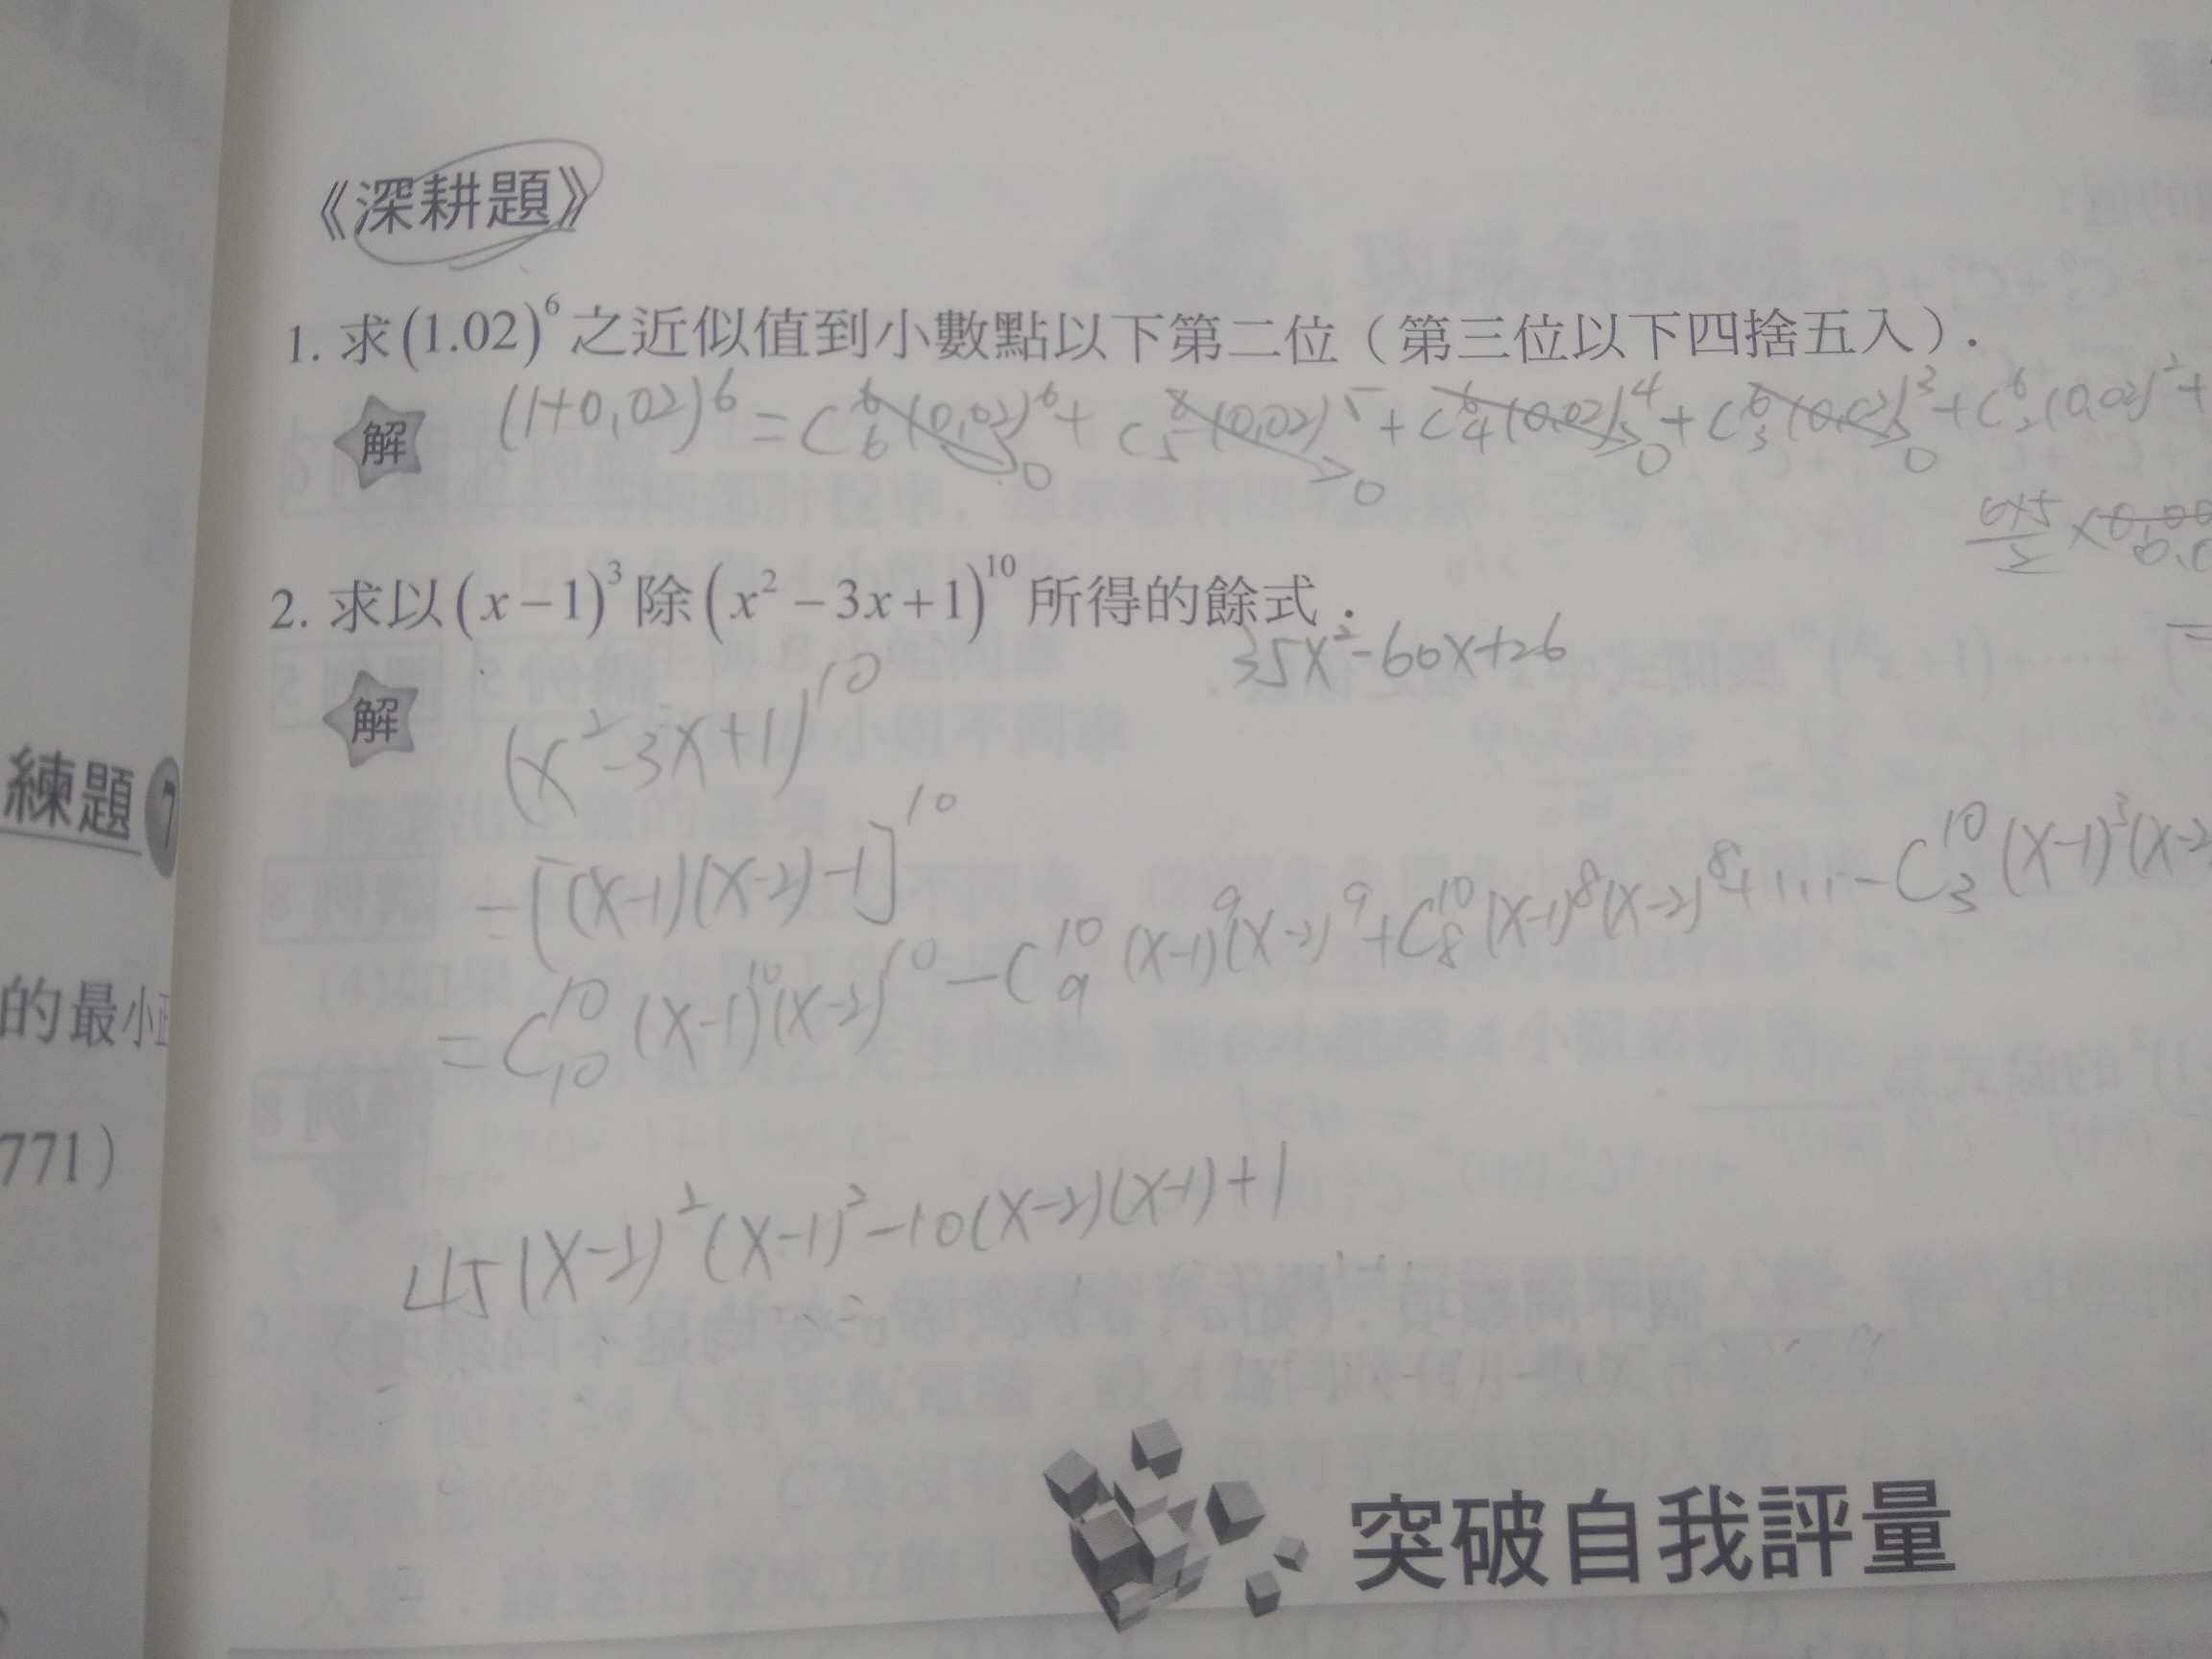 《深耕題》
1. 求(1.02)^6之近似值到小數點以下第二位（第三位以下四捨五入）.
解 (1+0.02)^6 = C^6_6(0.02)^6 + C^6_5(0.02)^5 + C^6_4(0.02)^4 + C^6_3(0.02)^3 + C^6_2(0.02)^2 +
0 0 0 0
6×5/2 ×
2. 求以(x−1)^3除(x^2−3x+1)^10所得的餘式.
35x^2-60x+26
解 (x^2-3x+1)^10
=[(x-1)(x-2)-1]^10
=C^10_10(x-1)^10(x-2)^10-C^10_9(x-1)^9(x-2)^9+C^10_8(x-1)^8(x-2)^8+...-C^10_3(x-1)^3(x-2
45(x-2)^2(x-1)^2-10(x-2)(x-1)+1
突破自我評量
練題 7
的最小正
771）